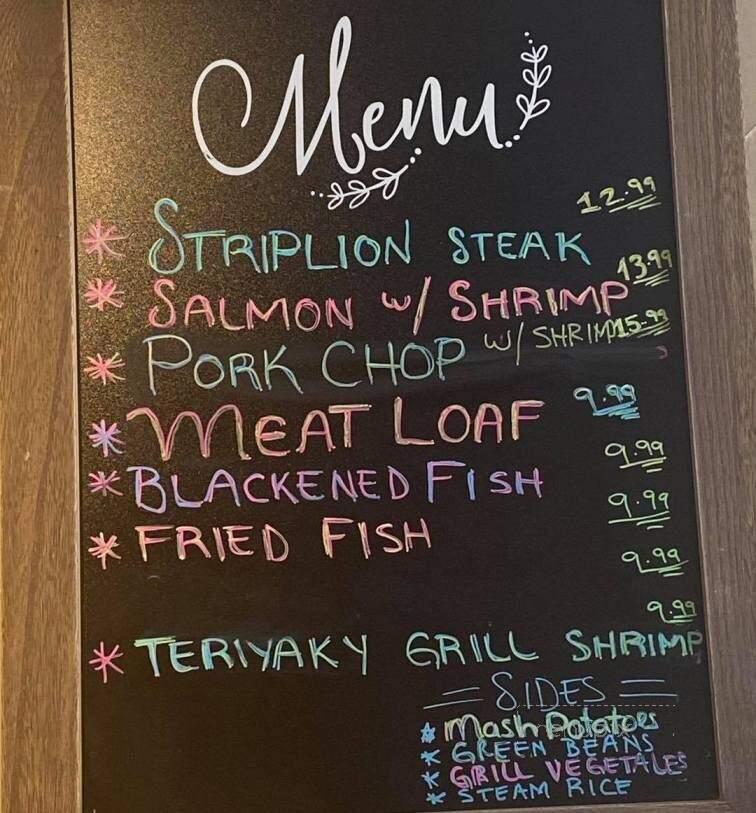 Menu
12.99
* STRIPLION STEAK
13.99
* SALMON w/ SHRIMP
* PORK CHOP w/ SHRIMP 15.99
9.99
* MEAT LOAF
9.99
* BLACKENED FISH
9.99
* FRIED FISH
9.99
9.99
* TERIYAKY GRILL SHRIMP
= SIDES =
* Mash Potatoes
* GREEN BEANS
* GRILL VEGETALES
* STEAM RICE